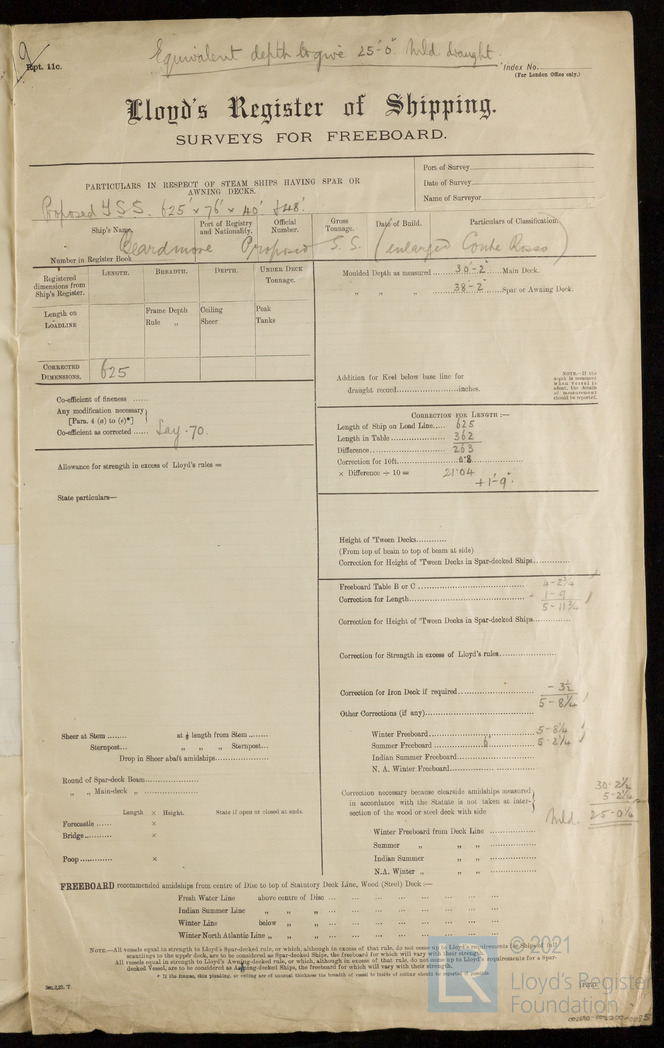 Equivalent depth to give 25'-0" Mld. draught.
Rpt. 11c.
Index No.
(For London Office only.)
Lloyd's Register of Shipping.
SURVEYS FOR FREEBOARD.
PARTICULARS IN RESPECT OF STEAM SHIPS HAVING SPAR OR AWNING DECKS.
Port of Survey
Date of Survey
Name of Surveyor
Proposed T.S.S. 625' x 76' x 40' & 48'.
Ship's Name.
Port of Registry and Nationality.
Official Number.
Gross Tonnage.
Date of Build.
Particulars of Classification.
Beardmore Proposed S.S. (enlarged Conte Rosso)
Number in Register Book
Registered dimensions from Ship's Register.
LENGTH. BREADTH. DEPTH. UNDER DECK TONNAGE.
Length on LOADLINE
Frame Depth
Rule „
Ceiling
Sheer
Peak
Tanks
CORRECTED DIMENSIONS. 625
Moulded Depth as measured 30'-2" Main Deck.
„ „ „ 38-2" Spar or Awning Deck.
Addition for Keel below base line for
draught record inches.
NOTE.—If the depth is measured when vessel is afloat, the details of measurement should be reported.
Co-efficient of fineness
Any modification necessary
[Para. 4 (a) to (e)*]
Co-efficient as corrected Say .70.
CORRECTION FOR LENGTH :—
Length of Ship on Load Line 625
Length in Table 362
Difference 263
Correction for 10ft. 0.8
× Difference ÷ 10 = 21.04
+1'-9"
Allowance for strength in excess of Lloyd's rules =
State particulars—
Height of 'Tween Decks
(From top of beam to top of beam at side)
Correction for Height of 'Tween Decks in Spar-decked Ships
Freeboard Table B or C 4-2¾
Correction for Length 1-9
5-11¾
Correction for Height of 'Tween Decks in Spar-decked Ships
Correction for Strength in excess of Lloyd's rules
Correction for Iron Deck if required - 3½
5-8¼
Other Corrections (if any)
Winter Freeboard 5-8¼
Summer Freeboard 6" 5-2¼
Indian Summer Freeboard
N. A. Winter Freeboard
Sheer at Stem at ⅛ length from Stem
Sternpost „ „ „ Sternpost
Drop in Sheer abaft amidships
Round of Spar-deck Beam
„ „ Main-deck „
Length × Height. State if open or closed at ends.
Forecastle ×
Bridge ×
Poop ×
Correction necessary because clearside amidships measured
in accordance with the Statute is not taken at inter-
section of the wood or steel deck with side
30-2½
5-2¼
Mld. 25-0¼
Winter Freeboard from Deck Line
Summer „ „ „
Indian Summer „ „
N.A. Winter „ „ „
FREEBOARD recommended amidships from centre of Disc to top of Statutory Deck Line, Wood (Steel) Deck :—
Fresh Water Line above centre of Disc
Indian Summer Line „ „ „
Winter Line below „ „
Winter North Atlantic Line „ „ „
NOTE.—All vessels equal in strength to Lloyd's Spar-decked rule, or which, although in excess of that rule, do not come up to Lloyd's requirements for Ships of full
scantlings to the upper deck, are to be considered as Spar-decked Ships, the freeboard for which will vary with their strength.
All vessels equal in strength to Lloyd's Awning-decked rule, or which, although in excess of that rule, do not come up to Lloyd's requirements for a Spar-
decked Vessel, are to be considered as Awning-decked Ships, the freeboard for which will vary with their strength.
© 2021
LR
Lloyd's Register
Foundation